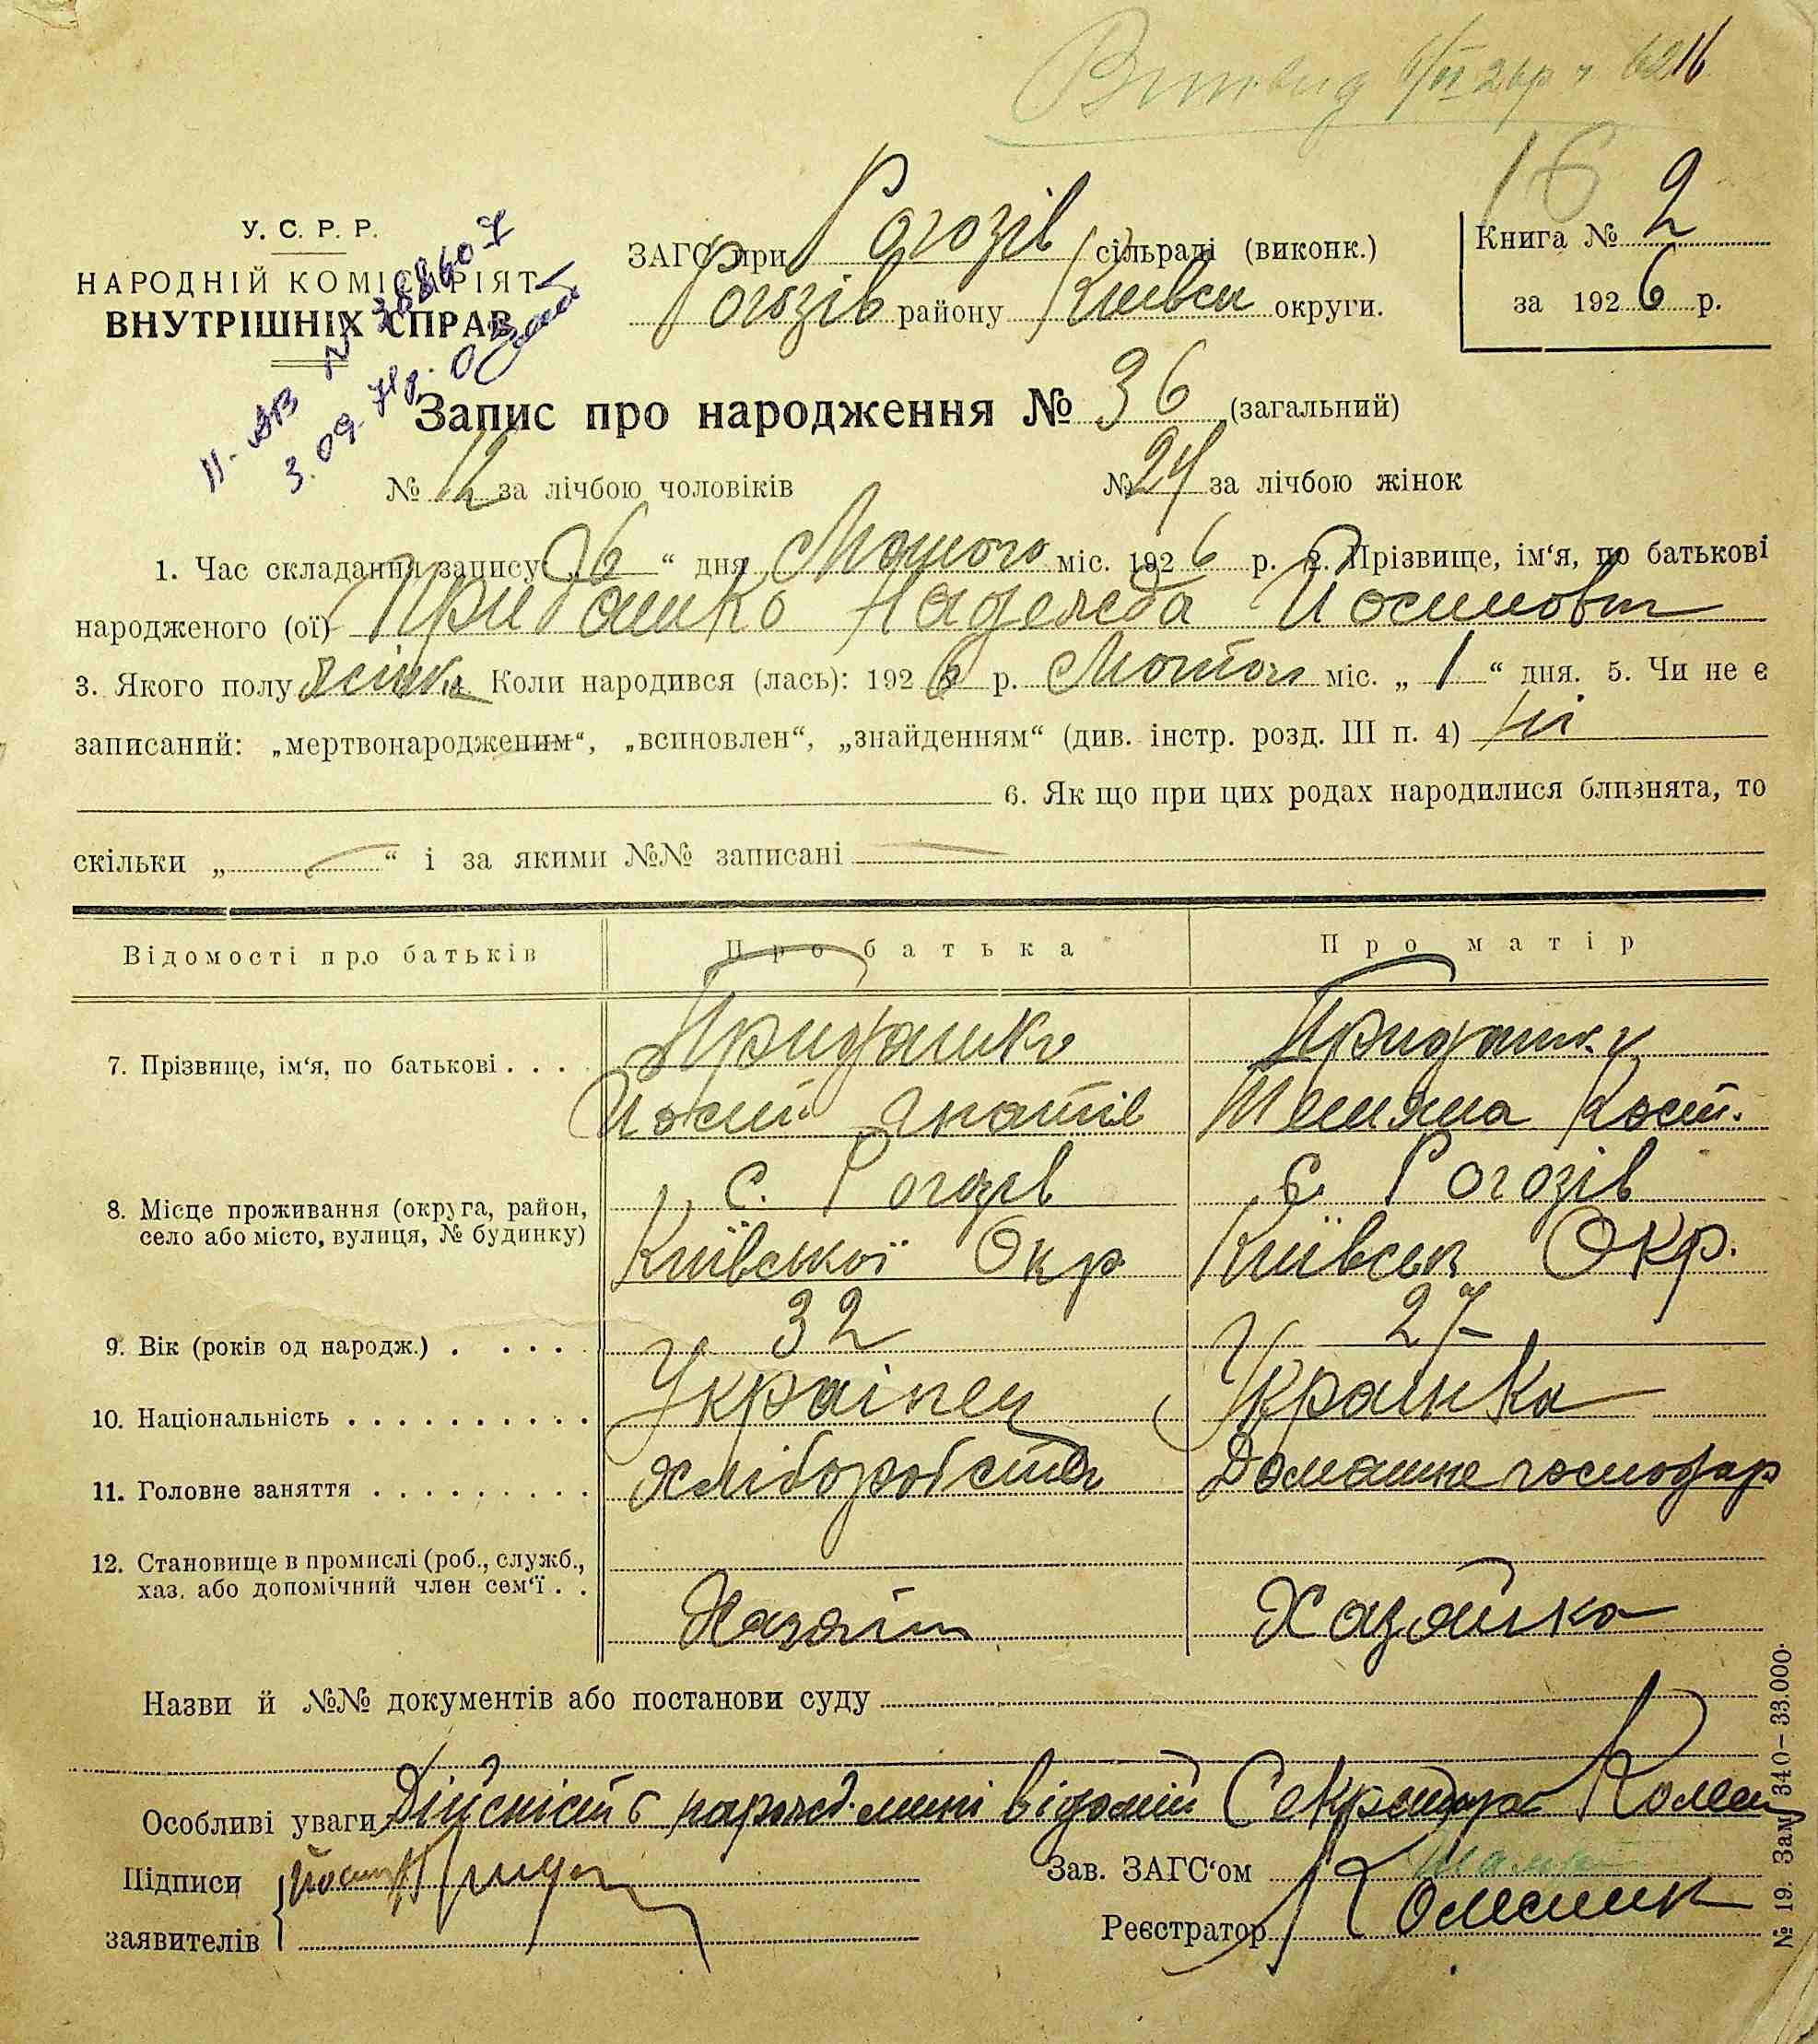 16
У. С. Р. Р.
НАРОДНІЙ КОМІСАРІЯТ
ВНУТРІШНІХ СПРАВ
ЗАГС при Рогозів сільраді (виконк.)
Рогозів району Київськ округи.
Книга № 2
за 1926 р.
Запис про народження № 36 (загальний)
№ 12 за лічбою чоловіків № 24 за лічбою жінок
1. Час складання запису „6“ дня Лютого міс. 1926 р. 2. Прізвище, ім‘я, по батькові
народженого (ої) Придатко Надежда Йосиповн
3. Якого полу жінка Коли народився (лась): 1926 р. Лютого міс. „1“ дня. 5. Чи не є
записаний: „мертвонародженим“, „всиновлен“, „знайденням“ (див. інстр. розд. III п. 4) ні
6. Як що при цих родах народилися близнята, то
скільки „ “ і за якими №№ записані
Відомості про батьків Про батька Про матір
7. Прізвище, ім‘я, по батькові . . . Придатко Придатко
Йосип Гнатів Тетяна Кост.
8. Місце проживання (округа, район, с. Рогозів с. Рогозів
село або місто, вулиця, № будинку) Київської Окр Київськ Окр.
9. Вік (років од народж.) . . . . . 32 27
10. Національність . . . . . . . . . . Українец Українка
11. Головне заняття . . . . . . . . . Хліборобство Домашнє господар
12. Становище в промислі (роб., служб.,
хаз. або допомічний член сем‘ї . . Хазяїн Хазяйка
Назви й №№ документів або постанови суду
Особливі уваги Дійсність народж. мені відомій Секретар
Підписи Йосип Зав. ЗАГС‘ом
заявителів Реєстратор Колесник
№ 19. Зам. 340—33.000.